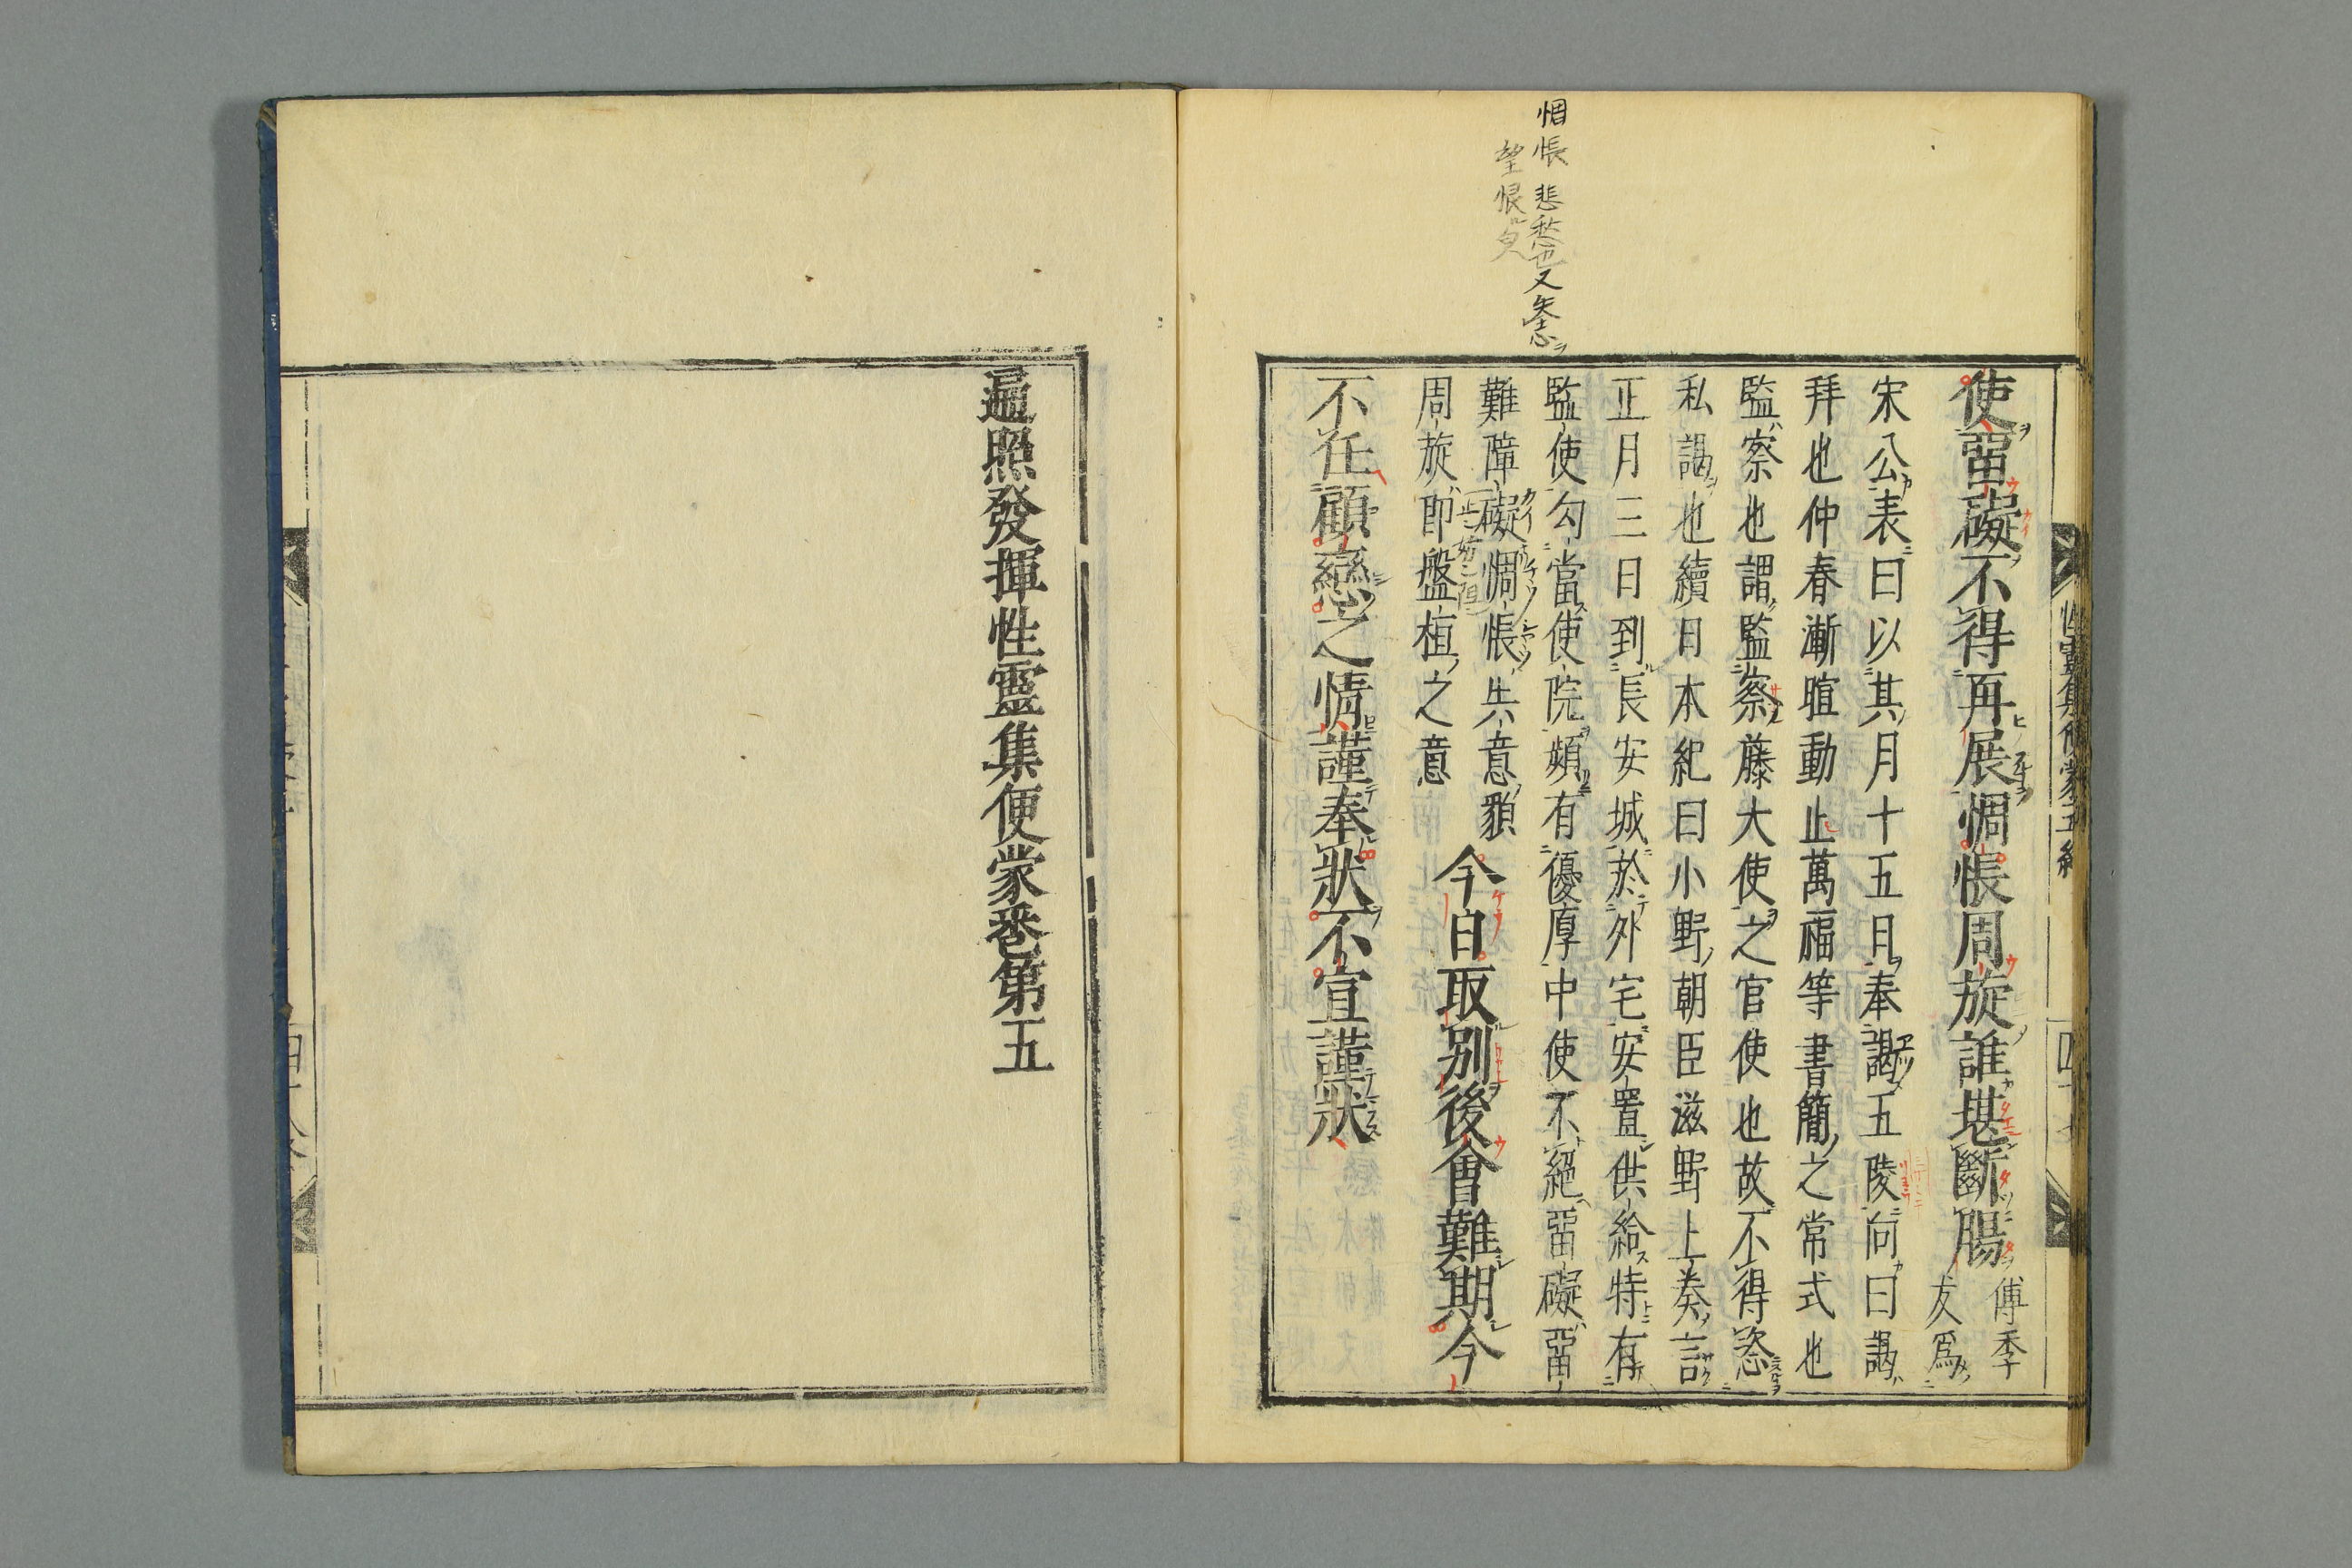 惆悵 悲愁也又失志
望恨皃
使畱礙不得再展惆悵周旋誰堪斷腸 傅季
友爲
宋公表曰以其月十五日奉謁五陵向曰謁
拜也仲春漸暄動止萬福等書簡之常式也
監察也謂監察藤大使之官使也故不得恣
私謁也續日本紀曰小野朝臣滋野上奏言
正月三日到長安城於外宅安置供給特有
監使勾當使院頻有優厚中使不絕畱礙畱
難障礙惆悵失意貌
周旋即盤桓之意
今日取別後會難期今
不任顧戀之情謹奉狀不宣謹狀
遍照發揮性靈集便蒙卷第五